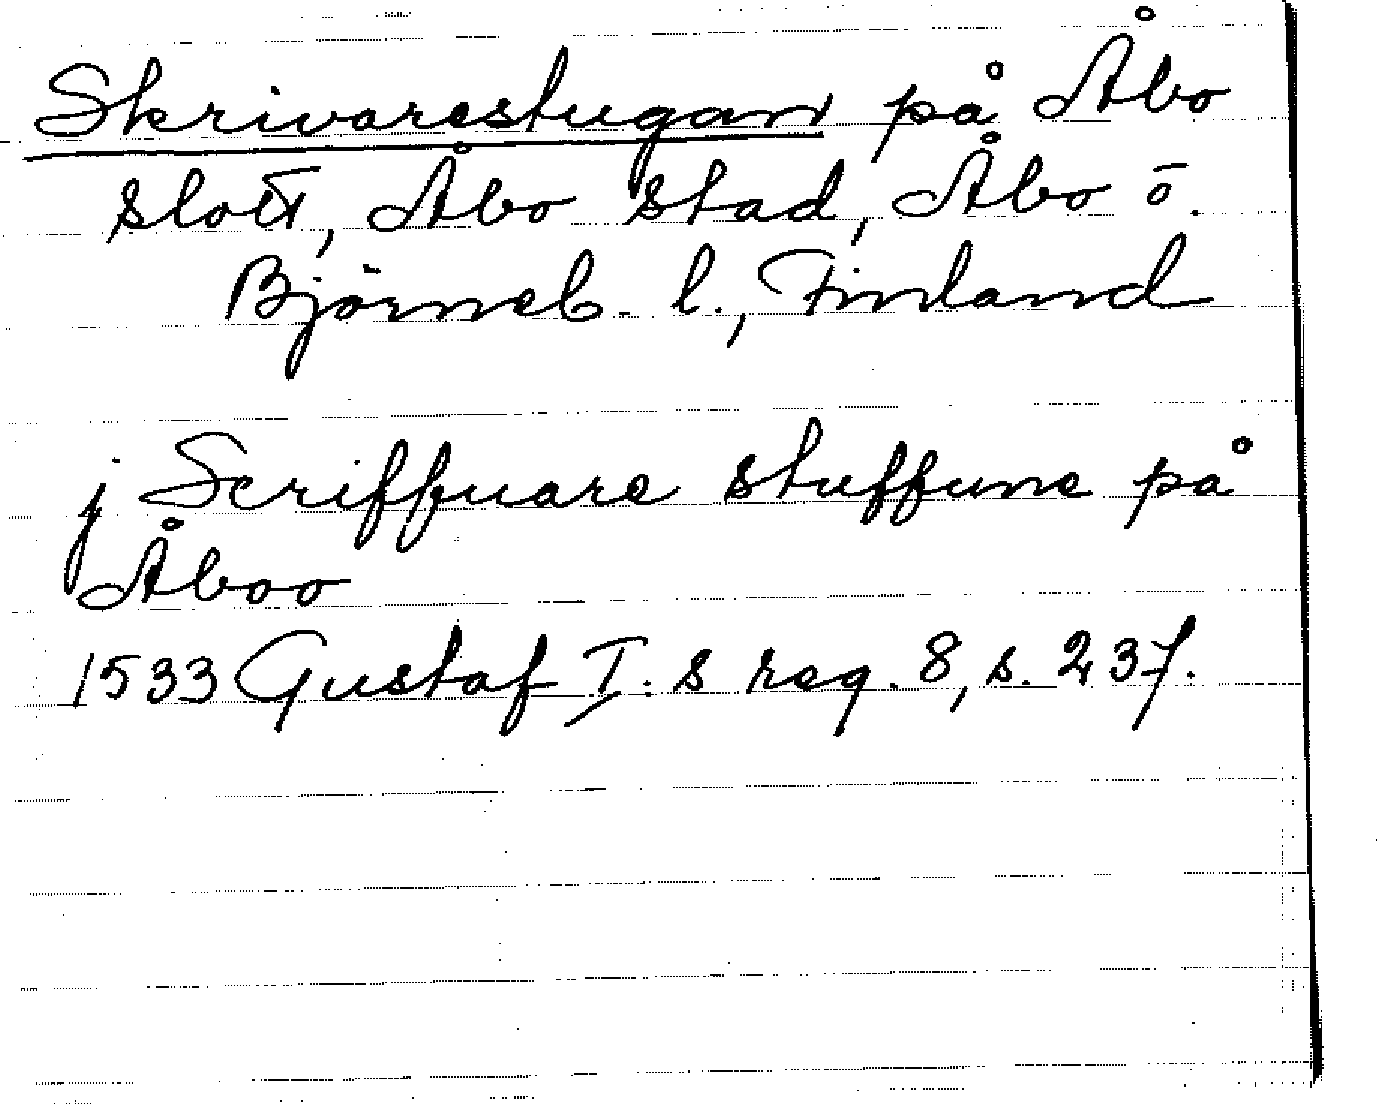 Skrivarestugan på Åbo
slott, Åbo stad, Åbo o.
Björneb. l., Finland
j Scriffuare stuffune på
Åboo
1533 Gustaf I:s reg. 8, s. 237.